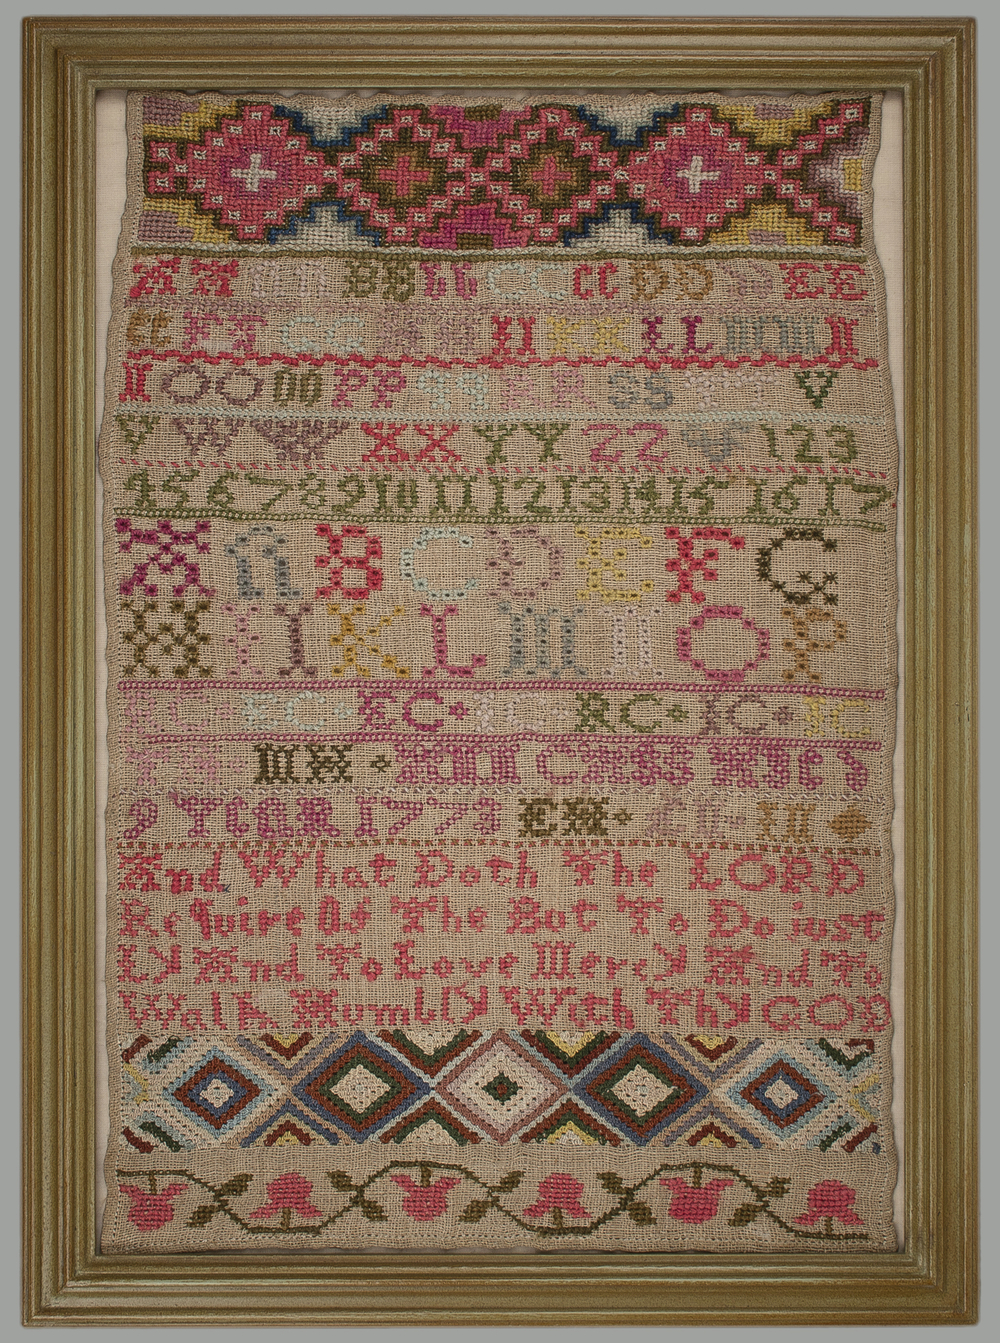 A A B B C C C C D D E E
E E F F G G H H I I K K L L M M N
N O O P P Q Q R R S S T T V
V W W X X Y Y Z Z 1 2 3
4 5 6 7 8 9 10 11 12 13 14 15 16 17
A A B C D E F G
H I I K L M N O P
EC EC IC RC IC IC
MH
9 YEAR 1773 EH IH
And What Doth The LORD
Require Of The But To Do just
Ly And To Love Mercy And To
Walk Humbly With Thy GOD